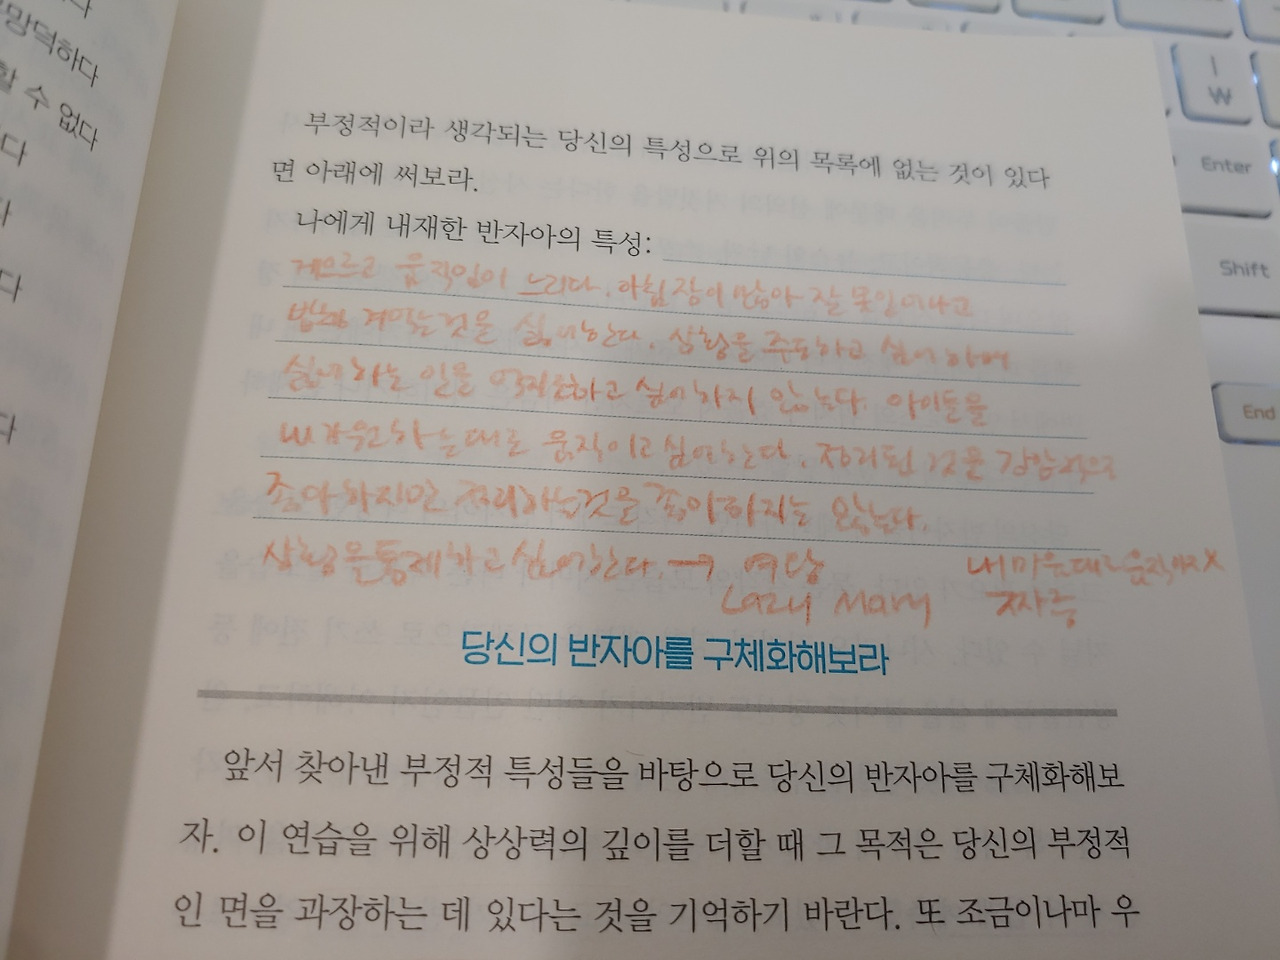 망덕하다
할 수 없다
다
다
부정적이라 생각되는 당신의 특성으로 위의 목록에 없는 것이 있다
면 아래에 써보라.
나에게 내재한 반자아의 특성:
게으르고 움직임이 느리다. 아침잠이 많아 잘 못일어나고
것을 싫어한다. 상황을 주도하고 싶어하며
싫어하는 일을 억지로하고 싶어하지 않는다. 아이들을
내가원하는대로 움직이고싶어한다. 정리된 것을 강박적으로
좋아하지만 정리하는것을 좋아하지는 않는다.
상황을통제하고싶어한다. → 여당 내마음대로움직여X
Lazy Mary 짜증
당신의 반자아를 구체화해보라
앞서 찾아낸 부정적 특성들을 바탕으로 당신의 반자아를 구체화해보
자. 이 연습을 위해 상상력의 깊이를 더할 때 그 목적은 당신의 부정적
인 면을 과장하는 데 있다는 것을 기억하기 바란다. 또 조금이나마 우
W
Enter
Shift
End